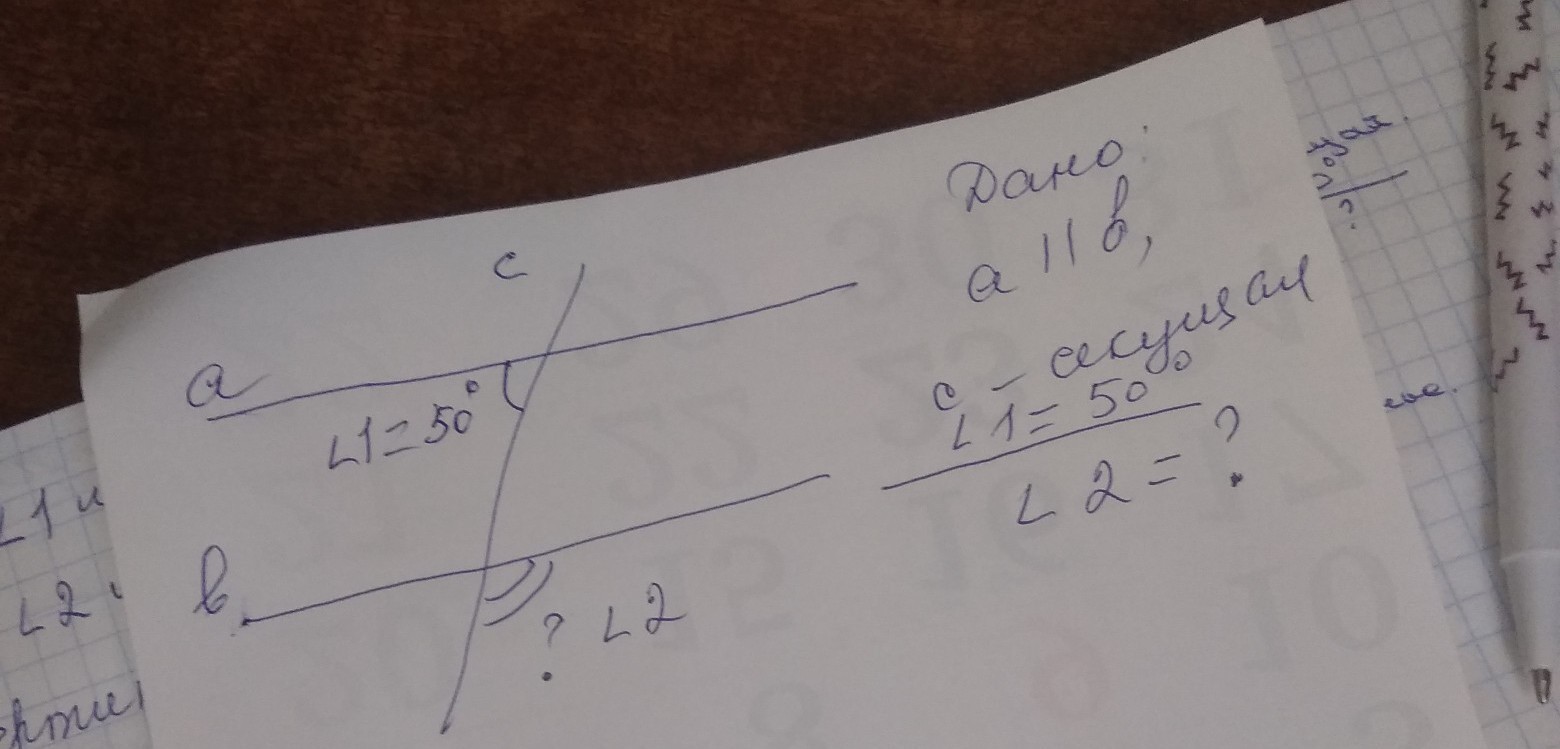 Дано:
a || b,
c – секущая
∠1 = 50°
∠2 = ?
c
a
∠1 = 50°
b
? ∠2
∠1 и
∠2